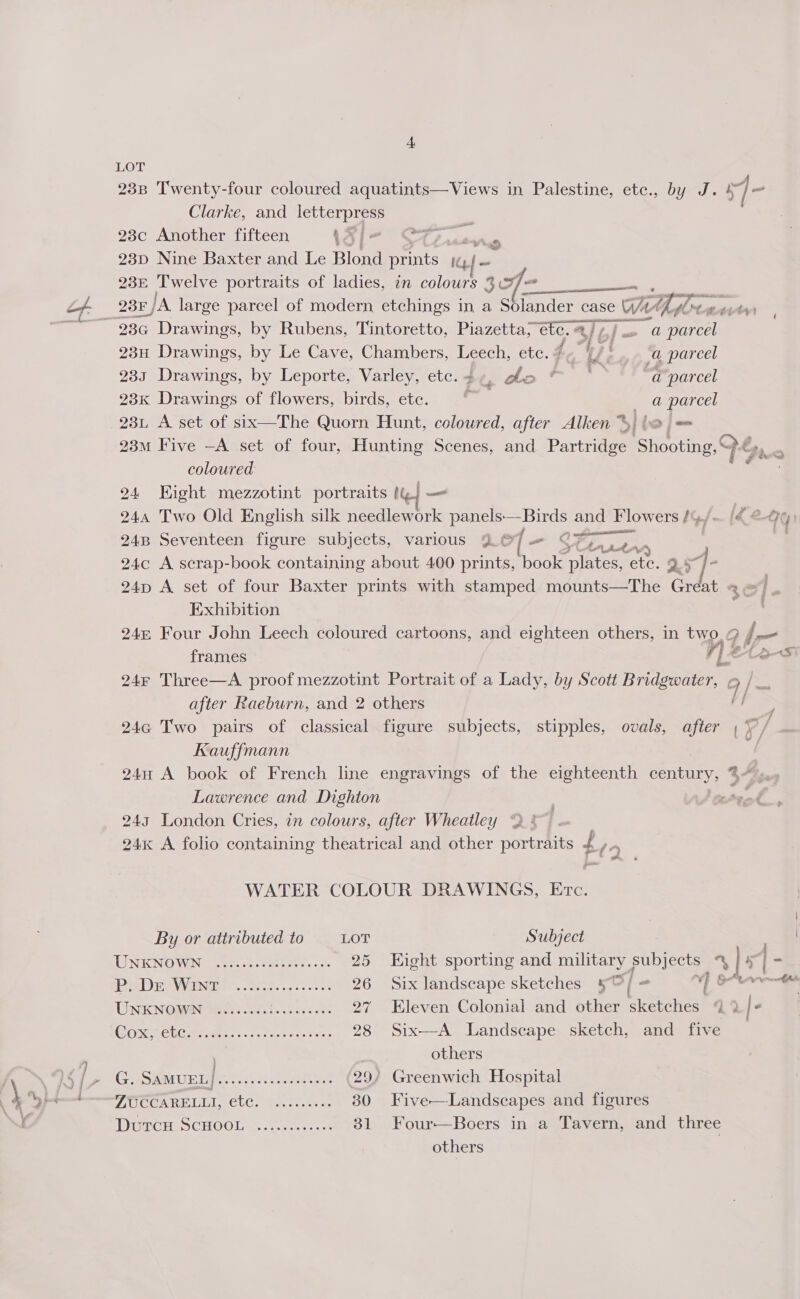 4
LOT
23B Twenty-four coloured aquatints—Views in Palestine, etc., by J.
Clarke, and letterpress
23C Another fifteen
23D Nine Baxter and Le Blond prints
23E Twelve portraits of ladies, in colours
23F A large parcel of modern etchings in a Solander case
23G Drawings, by Rubens, Tintoretto, Piazetta, etc. a parcel
23H Drawings, by Le Cave, Chambers, Leech, etc. a parcel
23J Drawings, by Leporte, Varley, etc. do a parcel
23K Drawings of flowers, birds, etc. a parcel
23L A set of six—The Quorn Hunt, coloured, after Alken
23M Five —A set of four, Hunting Scenes, and Partridge Shooting,
coloured
24 Eight mezzotint portraits
24A Two Old English silk needlework panels—Birds and Flowers
24B Seventeen figure subjects, various
24C A scrap-book containing about 400 prints, book plates, etc.
24D A set of four Baxter prints with stamped mounts—The Great
Exhibition
24E Four John Leech coloured cartoons, and eighteen others, in two
frames
24F Three—A proof mezzotint Portrait of a Lady, by Scott Bridgwater,
after Raeburn, and 2 others
24G Two pairs of classical figure subjects, stipples, ovals, after
Kauffmann
24H A book of French line engravings of the eighteenth century,
Lawrence and Dighton
24J London Cries, in colours, after Wheatley
24K A folio containing theatrical and other portraits
WATER COLOUR DRAWINGS, ETC.
By or attributed to LOT Subject
UNKNOWN ............... 25 Eight sporting and military subjects
P. DE WINT ............ 26 Six landscape sketches
UNKNOWN ............... 27 Eleven Colonial and other sketches
COX, etc. ............... 28 Six—A Landscape sketch, and five
others
G. SAMUEL ............... 29 Greenwich Hospital
ZUCCARELLI, etc. ......... 30 Five—Landscapes and figures
DUTCH SCHOOL ............ 31 Four—Boers in a Tavern, and three
others